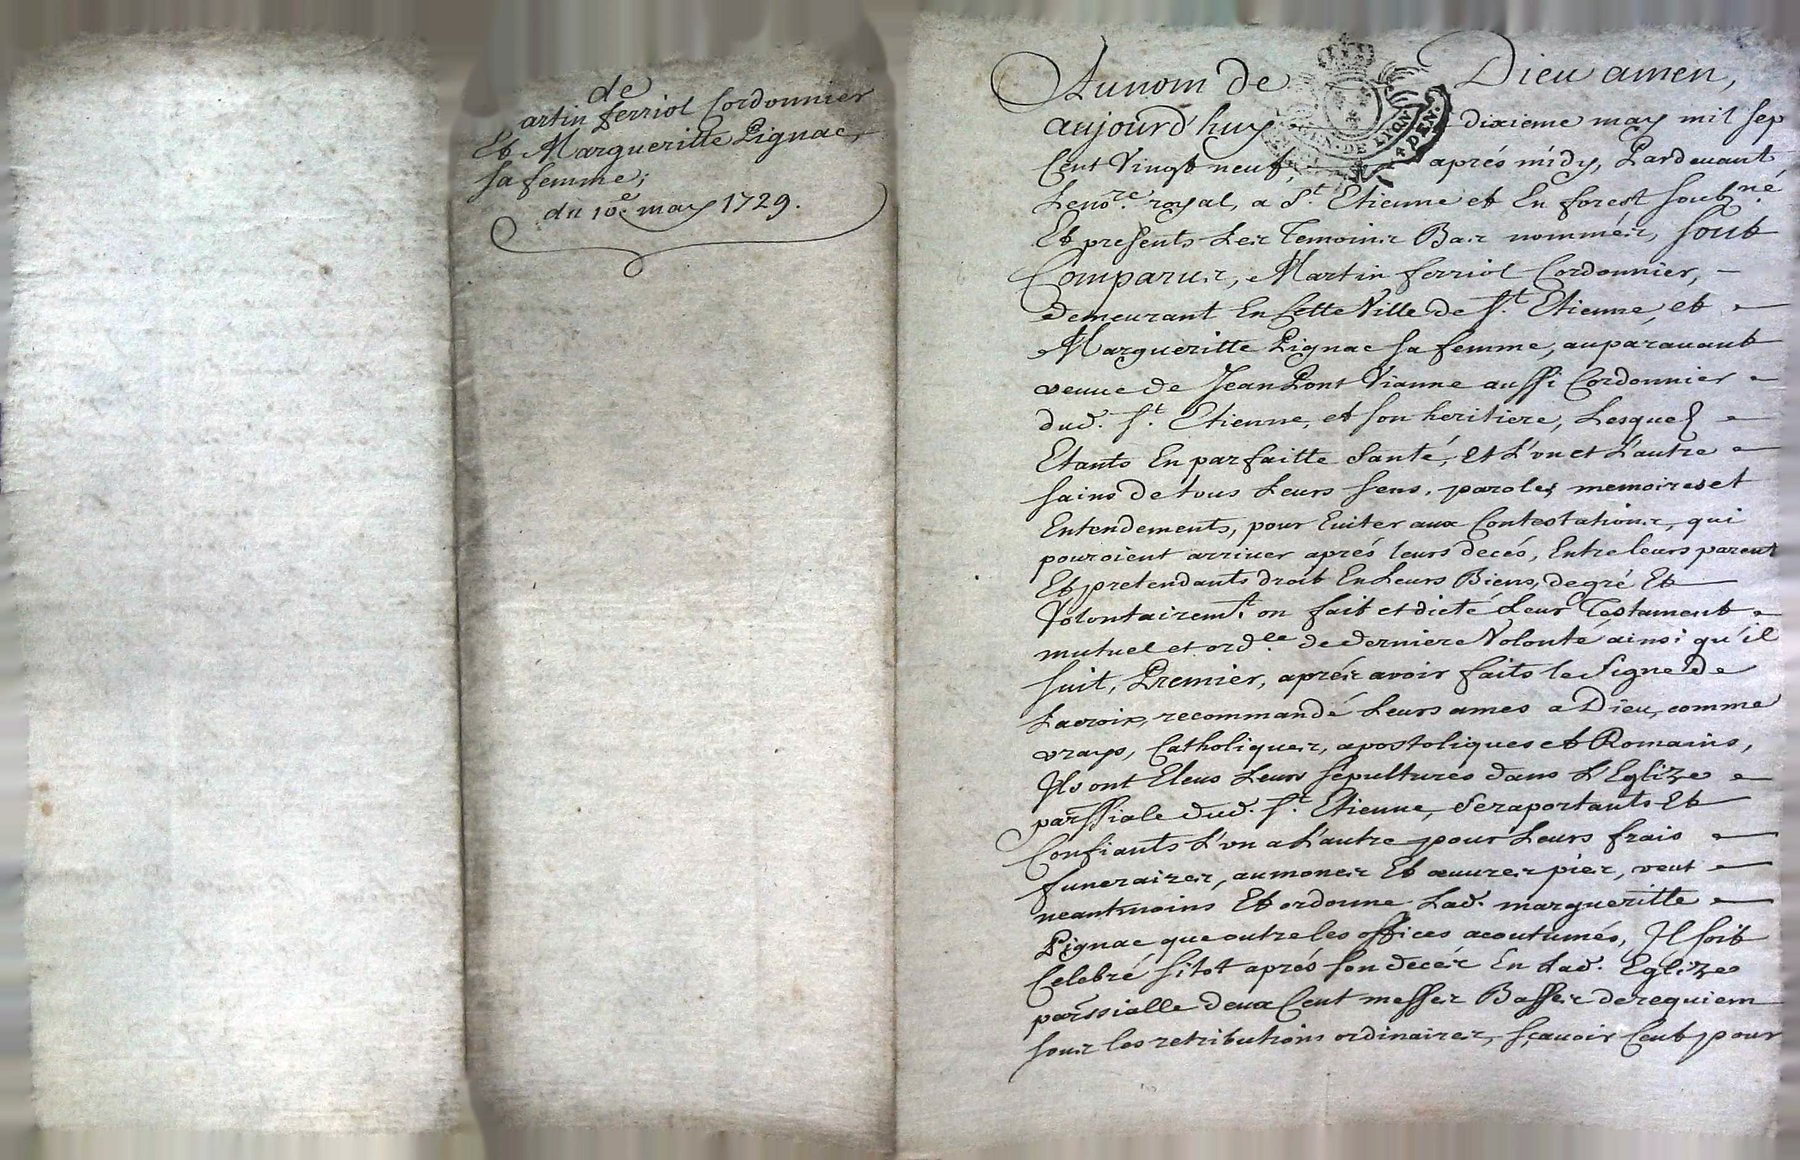 de
artin ferriol Cordonnier
Et Margueritte Pignac,
sa femme;
du 10e may 1729.
Au nom de Dieu amen,
aujourd'huy dixieme may mil sep
Cent Vingt neuf, aprés midy, Pardevant
Le nore. royal, a St. Etienne et En forest soubné.
Et presents Les Temoins Bas nommés, sont
Comparus, Martin ferriol Cordonnier,
demeurant En Cette Ville de St. Etienne, et
Margueritte Pignac sa femme, auparauant
veuue de Jean Pont Vianne aussi Cordonnier
dud. St. Etienne, et son heritiere, Lesquels
Etants En parfaitte Santé, et L'un et L'autre
sains de tous Leurs sens, paroles memoires et
Entendements, pour Euiter aux Contestations, qui
pouroient arriuer aprés leurs decés, Entre leurs parent
Et pretendants droit En Leurs Biens, de gré Et
Volontairemt. on fait et dicté Leur Testament
mutuel et ordle. de derniere Volonté ainsi qu'il
suit, Premier, aprés avoir faits le Signe de
La croix, recommandé Leurs ames a Dieu, comme
vrays, Catholiques, apostoliques et Romains,
Ils ont Eleus Leurs sepultures dans L'Eglize
parssiale dud. St. Etienne, Se raportants Et
Confiants L'un a L'autre pour Leurs frais
funeraires, aumones Et œuures pies, veut
neantmoins Et ordonne Lad. margueritte
Pignac que outre les offices acoutumés, Il soit
Celebré sitot aprés son decés En Lad. Eglize
parssialle deux Cent messes Basses de requiem
sous les retributions ordinaires, sçauoir Cent pour
GEN. DE LION
4 DEN.